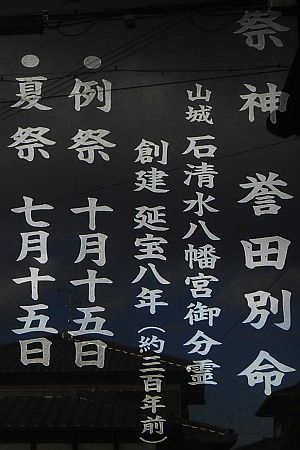 祭神 誉田別命
山城 石清水八幡宮御分霊
創建 延宝八年（約三百年前）
●例祭 十月十五日
●夏祭 七月十五日